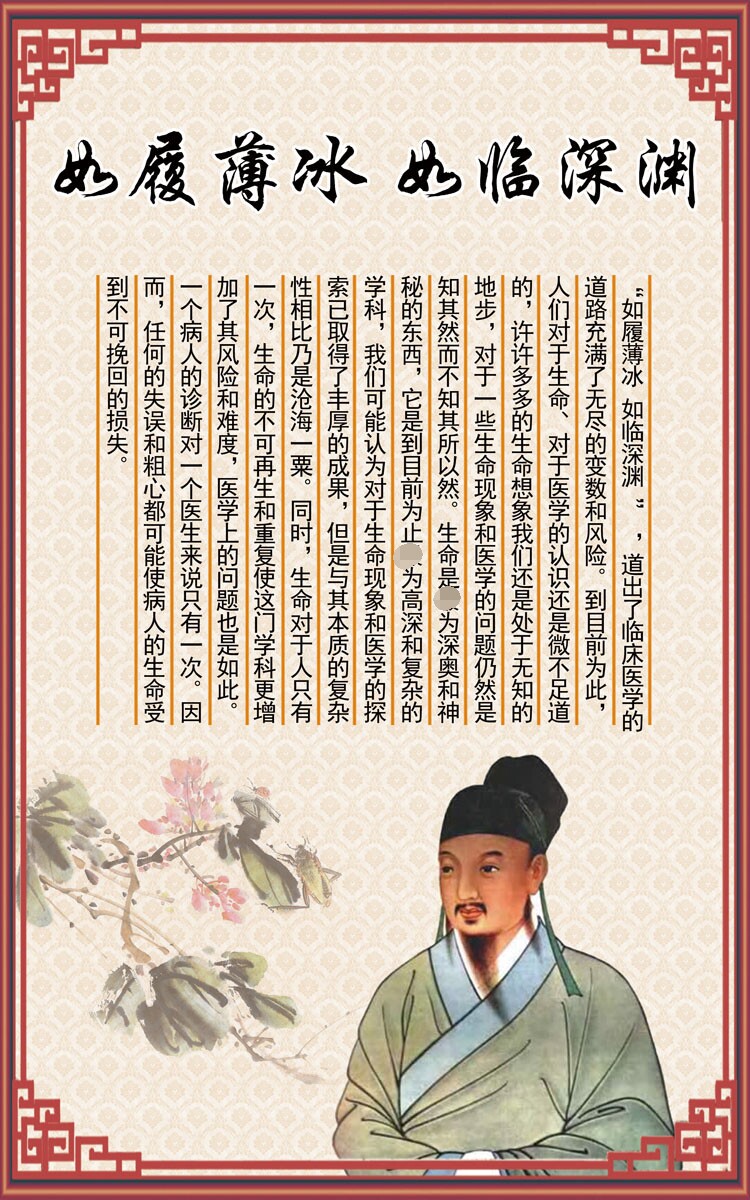 如履薄冰 如临深渊
“如履薄冰 如临深渊 ”，道出了临床医学的
道路充满了无尽的变数和风险。到目前为此，
人们对于生命、对于医学的认识还是微不足道
的，许许多多的生命想象我们还是处于无知的
地步，对于一些生命现象和医学的问题仍然是
知其然而不知其所以然。生命是为深奥和神
秘的东西，它是到目前为止为高深和复杂的
学科，我们可能认为对于生命现象和医学的探
索已取得了丰厚的成果，但是与其本质的复杂
性相比乃是沧海一粟。同时，生命对于人只有
一次，生命的不可再生和重复使这门学科更增
加了其风险和难度，医学上的问题也是如此。
一个病人的诊断对一个医生来说只有一次。因
而，任何的失误和粗心都可能使病人的生命受
到不可挽回的损失。